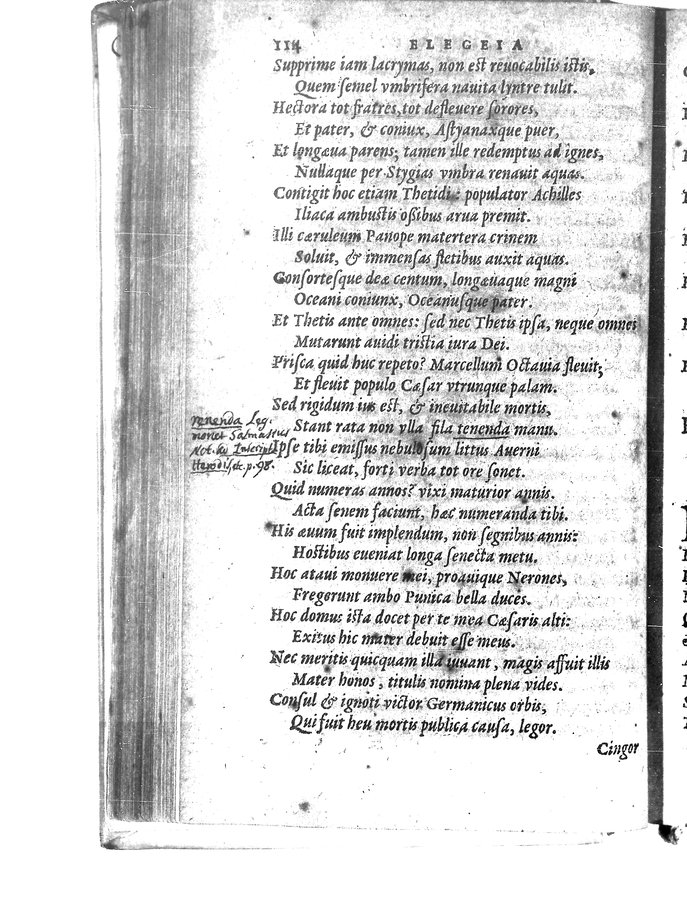 114 ELEGEIA
Supprime iam lacrymas, non est reuocabilis istis,
Quem ſemel vmbrifera nauita lyntre tulit.
Hectora tot fratres, tot defleuere ſorores,
Et pater, & coniux, Aſtyanaxque puer,
Et longæua parens; tamen ille redemptus ad ignes,
Nullaque per Stygias vmbra renauit aquas.
Contigit hoc etiam Thetidi: populator Achilles
Iliaca ambustis oſſibus arua premit.
Illi cæruleum Panope matertera crinem
Soluit, & immenſas fletibus auxit aquas.
Conſorteſque deæ centum, longæuaque magni
Oceani coniunx, Oceanuſque pater.
Et Thetis ante omnes: ſed nec Thetis ipſa, neque omnes
Mutarunt auidi tristia iura Dei.
Priſca quid huc repeto? Marcellum Octauia fleuit;
Et fleuit populo Cæſar vtrunque palam.
Sed rigidum ius est, & ineuitabile mortis,
Stant rata non vlla fila tenenda manu.
Ipſe tibi emiſſus nebuloſum littus Auerni
Sic liceat, forti verba tot ore ſonet.
Quid numeras annos? vixi maturior annis.
Acta ſenem faciunt, hæc numeranda tibi.
His æuum fuit implendum, non ſegnibus annis:
Hostibus eueniat longa ſenecta metu.
Hoc ataui monuere mei, proauique Nerones,
Fregerunt ambo Punica bella duces.
Hoc domus ista docet per te mea Cæſaris alti:
Exitus hic mater debuit eſſe meus.
Nec meritis quicquam illa iuuant, magis affuit illis
Mater honos, titulis nomina plena vides.
Conſul & ignoti victor Germanicus orbis,
Qui fuit heu mortis publica cauſa, legor.
Cingor
renenda Leg.
monet Salmasius
Not. in Inscript
Herodis, etc p. 98.